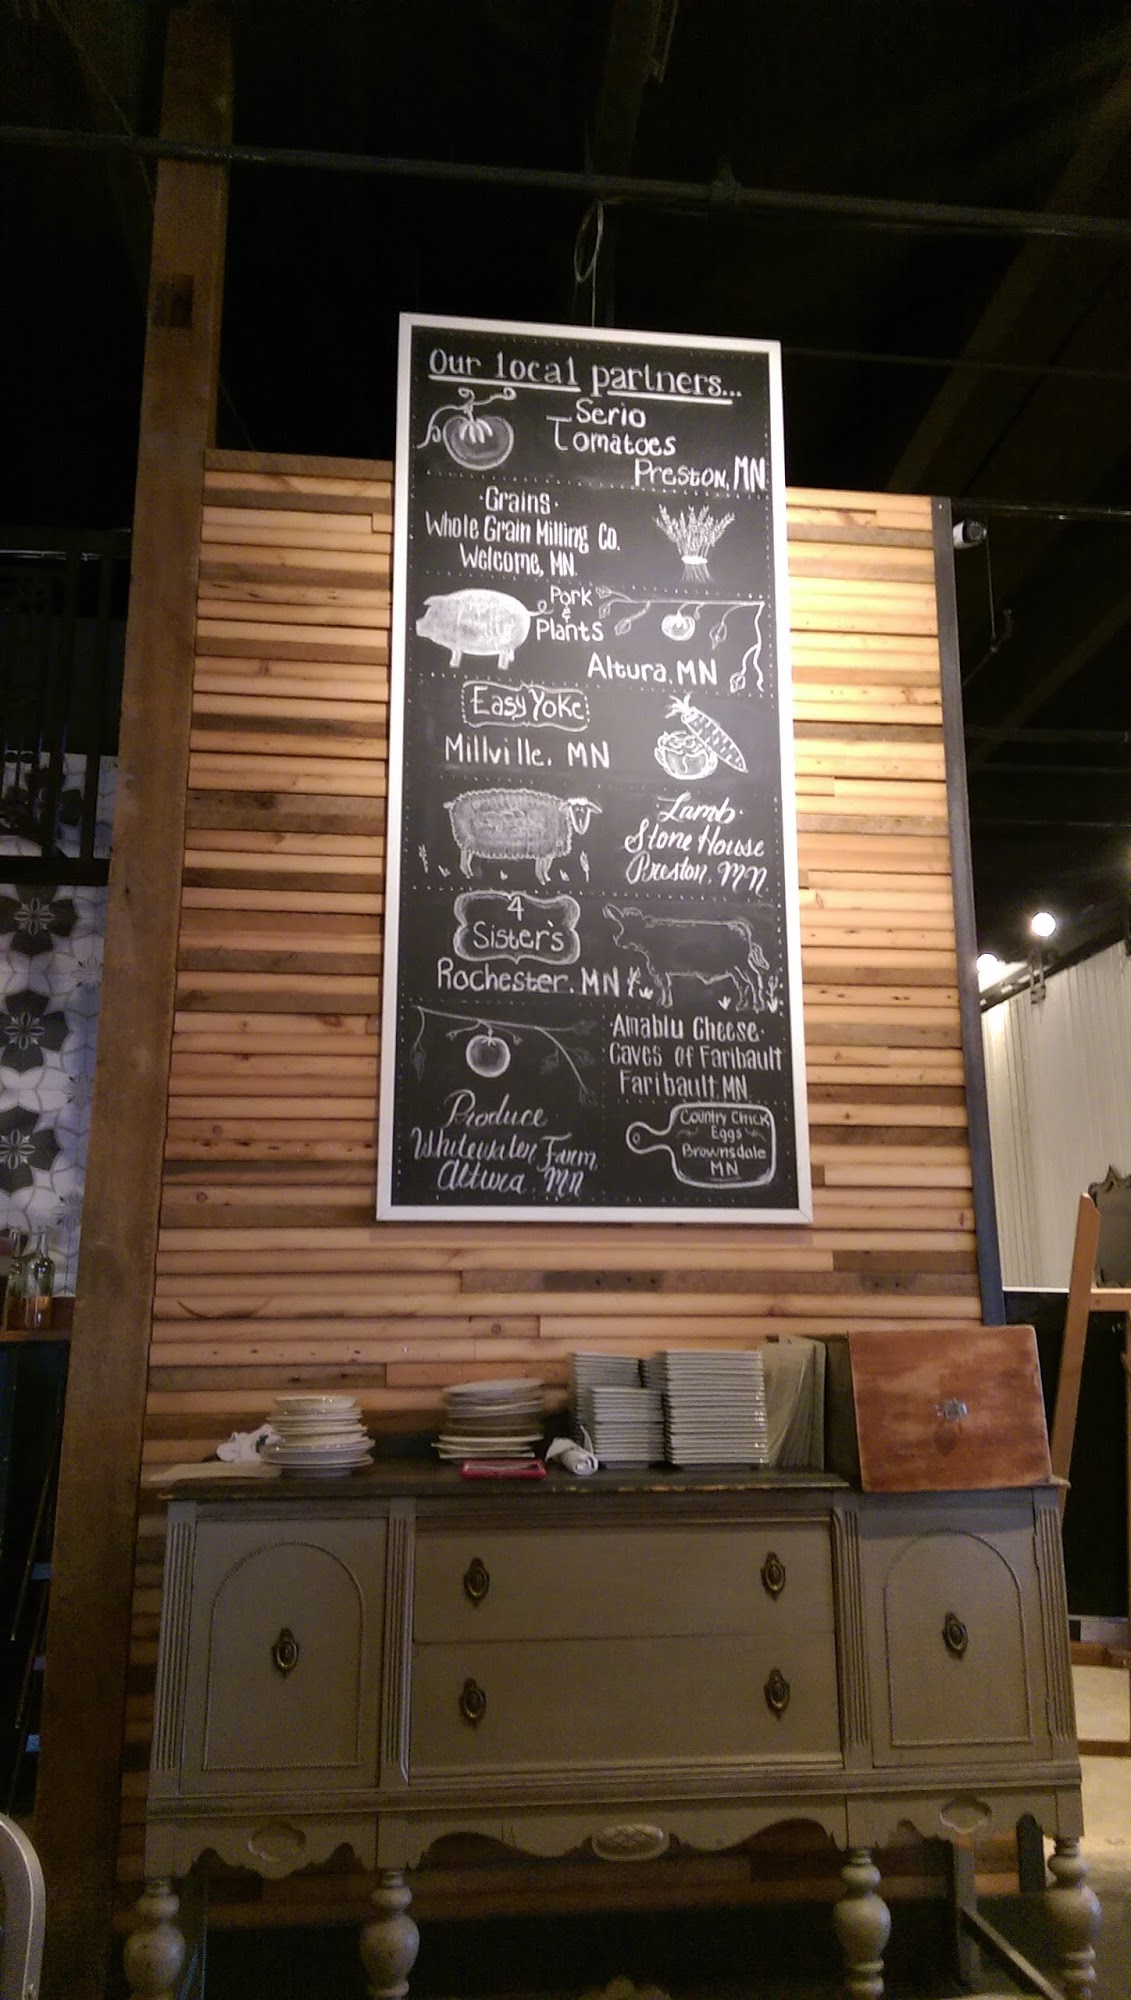 Our local partners...
Serio
Tomatoes
Preston, MN
·Grains·
Whole Grain Milling Co.
Welcome, MN.
Pork
&
Plants
Altura, MN
Easy Yoke
Millville, MN
Lamb·
Stone House
Preston, MN
4
Sister's
Rochester, MN
Amablu Cheese·
Caves of Faribault
Faribault, MN
Produce
Whitewater Farm,
Altura, MN
Country Chick
Eggs
Brownsdale
MN